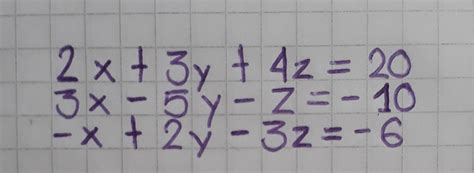 2x + 3y + 4z = 20
3x - 5y - z = - 10
-x + 2y - 3z = - 6